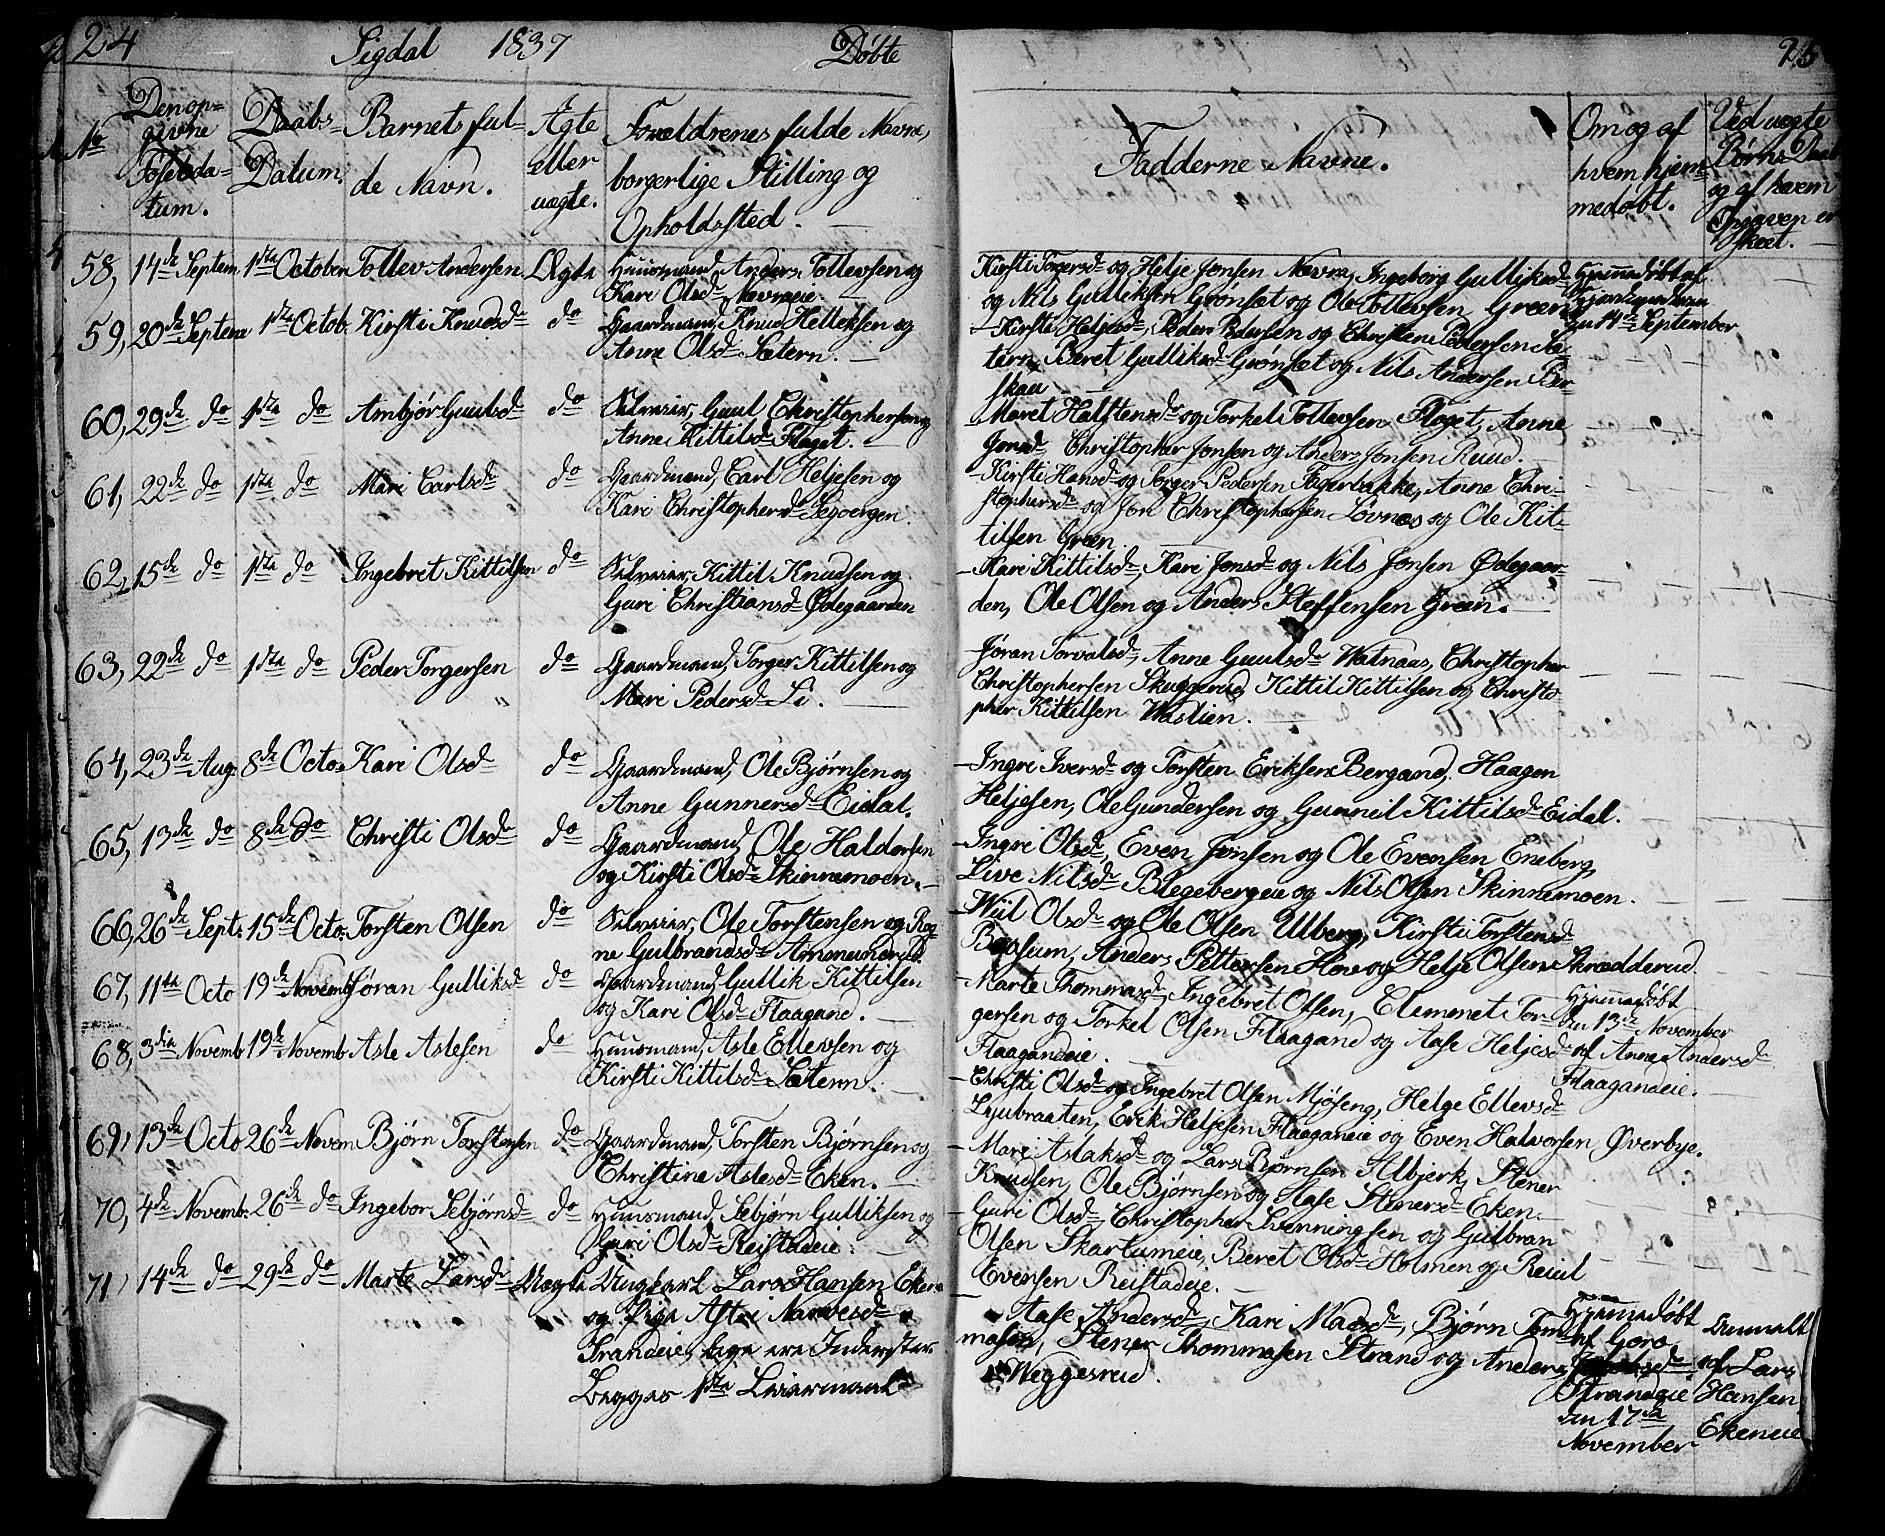 24 Sigdal 1837 Døbte
No
Den op-
givne
Fødselsda-
tum.
Daabs-
Datum.
Barnets ful-
de Navn.
Ægte
eller
uægte.
Forældrenes fulde Navne,
borgerlige Stilling og
Opholdssted.
58, 14de Septem. 1ste October Tollev Andersen Ægte Huusmand, Anders Tollevsen og
Kari Olsd Nævraeie.
59, 20de Septem 1ste Octob. Kirsti Knudsd do Gaardmand, Knud Helleksen og
Anne Olsd Sætern.
60, 29de do 1ste do Ambjør Guulsd do Selveier, Guul Christophersen og
Anne Kittilsd Flaget.
61, 22de do 1ste do Mari Carlsd do Gaardmand, Carl Heljesen og
Kari Christophersd
62, 15de do 1ste do Ingebret Kittilsen do Selveier, Kittil Knudsen og
Guri Christiansd Ødegaarden
63, 22de do 1ste do Peder Torgersen do Gaardmand, Torger Kittilsen og
Mari Pedersd Li.
64, 23de Aug. 8de Octo. Kari Olsd do Gaardmand, Ole Bjørnsen og
Anne Gunnersd Eidal.
65, 13de do 8de do Christi Olsd do Gaardmand, Ole Haldorsen
og Kirsti Olsd Skinnemoen.
66, 26de Sept. 15de Octo. Torsten Olsen do Selveier, Ole Torstensen og Rag-
ne Gulbrandsd
67, 11te Octo 19de Novemb Jøran Gulliksd do Gaardmand, Gullik Kittilsen
og Kari Olsd Flaagand.
68, 3die Novemb 19de Novemb Asle Aslesen do Huusmand, Asle Ellevsen og
Kirsti Kittilsd Sætern.
69, 13de Octo 26de Novem Bjørn Torstensen do Gaardmand, Torsten Bjørnsen og
Christine Aslesd Eken.
70, 4de Novemb. 26de do Ingebor Sebjørnsd do Huusmand, Sebjørn Gulliksen og
Guri Olsd Reistadeie.
71, 14de do 29de do Marte Larsd Uægte Ungkarl Lars Hansen Eken-
og Pige Astri Narvesd
Strandeie, begge ere Inderster
Begges 1ste Leiermaal
25
Fadderne Navne.
Om og af
hvem hjem-
medøbt.
Ved uægte
Børns Daab
og af hvem
Opgiven er
skeet.
Kirsti Torgersd og Helje Jonsen Nævra, Ingeborg Gulliksd
og Nils Gulliksen Grønset og Ole Tollevsen Green
Hjemmedøbt af
Gjordemoderen
den 14de September
Kirsti Heljesd, Peder Pedersen og Christen Pedersen Sæ-
tern, Beret Gulliksd Grønset og Nils Andersen Ber-
skau
Maret Halstensd og Torkel Tollevsen Flaget, Anne
Jonsd Christopher Jonsen og Anders Jonsen Ruud.
Kirsti Hansd og Torger Pedersen Fagerbakke, Anne Chri-
stophersd og Jon Christophersen Lovnes og Ole Kit-
tilsen Green.
Kari Kittilsd, Kari Jonsd og Nils Jonsen Ødegaar-
den, Ole Olsen og Anders Steffensen Green.
Jøran Torvalsd, Anne Guulsd Watnaas, Christopher
Christophersen Skuggerud, Kittil Kittilsen og Christo-
pher Kittilsen Wastien.
Ingri Iversd og Torsten Eriksen Bergand, Haagen
Heljesen, Ole Gundersen og Gunnil Kittilsd Eidal.
Ingri Olsd, Even Jonsen og Ole Evensen Eneberg,
Live Nilsd Blegebergeie og Nils Olsen Skinnemoen.
Olsd og Ole Olsen Ulberg, Kirsti Torstensd
Baalsum, Anders Pettersen Hov og Helje Olsen Skrædderud.
Marte Thommasd, Ingebret Olsen, Elemmet Tor-
gersen og Torkel Olsen Flaagand og Aase Heljesd
Flaagandeie.
Hjemmedøbt
den 13de November
af Anne Andersd
Flaagandeie.
Christi Olsd og Ingebret Olsen Mjøseng, Helge Ellevsd
Ljubraaten, Erik Heljesen Flaaganeie og Even Halvorsen Øverbye.
Mari Aslaksd og Lars Bjørnsen Albjerk, Stener
Knudsen, Ole Bjørnsen og Aase Stenersd Eken.
Guri Olsd, Christopher Svenningsen og Gulbran
Olsen Skartumeie, Beret Olsd Holmen og Reiul
Evensen Reistadeie.
Aase Andersd, Kari Madsd, Bjørn Tom-
masen, Stener Thommasen Strand og Anders
Weggesrud.
Hjemmedøbt
af Goro
Strandeie
den 17de
November
Anmalt
af Lars
Hansen
Ekeneie